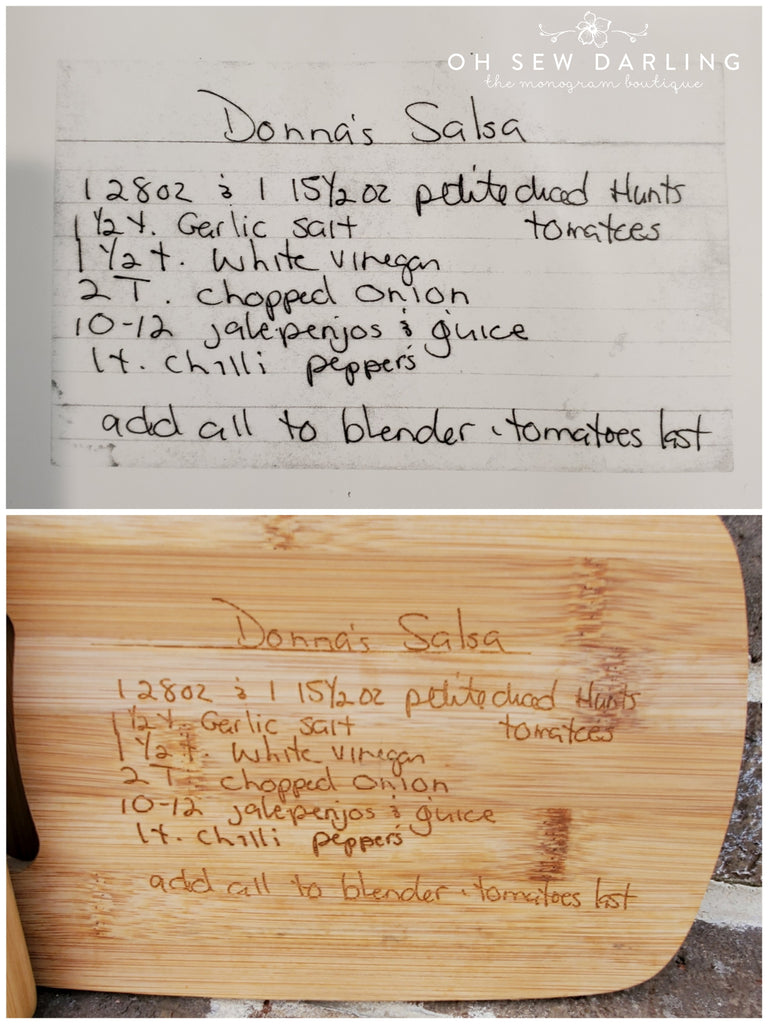 OH SEW DARLING
the monogram boutique
Donna's Salsa
1 28oz & 1 15½oz petite diced Hunts
1 ½ t. Garlic salt tomatoes
1 ½ t. White vinegar
2 T. chopped onion
10-12 jalepenjos & juice
1 t. chilli peppers
add all to blender, tomatoes last
Donna's Salsa
1 28oz & 1 15½oz petite diced Hunts
1 ½ t. Garlic salt tomatoes
1 ½ t. White vinegar
2 T. chopped onion
10-12 jalepenjos & juice
1 t. chilli peppers
add all to blender, tomatoes last